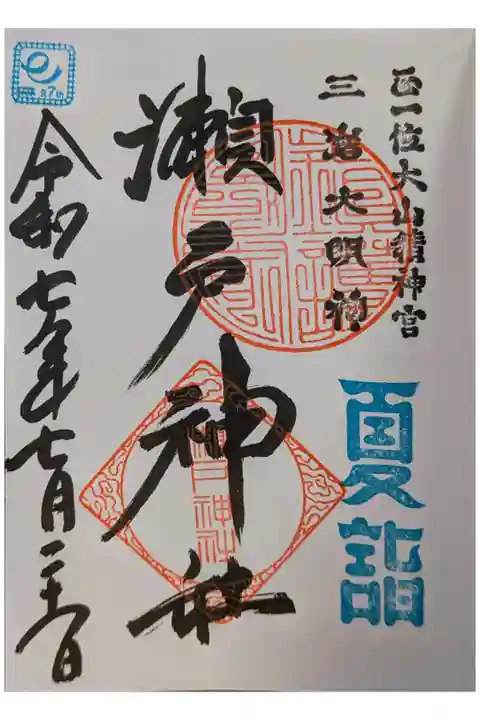 正一位大山積神宮
三嶋大明神
夏詣
瀬戸神社
瀬戸神社
令和七年七月二十六日
7th